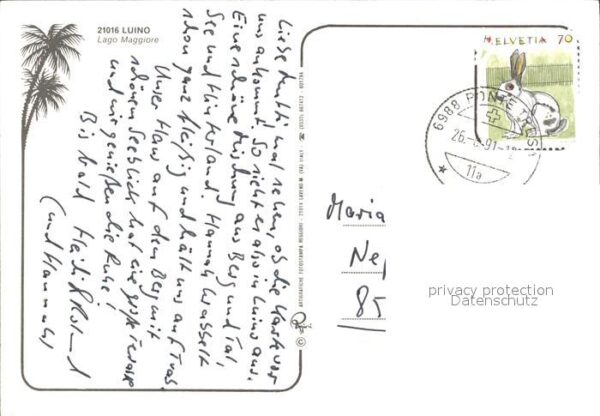 21016 LUINO
Lago Maggiore
Liebe Mutti mal sehen, ob die Karte vor
uns ankommt! So sieht es also in Luino aus.
Eine schöne Mischung aus Berg und Tal,
See und Hinterland. Hannah wasselt
schon ganz fleißig und hält uns auf Trab.
Unser Haus auf dem Berg mit
schönem Seeblick hat eine große Terrasse
und wir genießen die Ruhe!
Bis bald Heidi
(und Hannah)
HELVETIA 70
6988 PONTE TRESA
26. 91
11a
Maria
Ne
85
privacy protection
Datenschutz
©